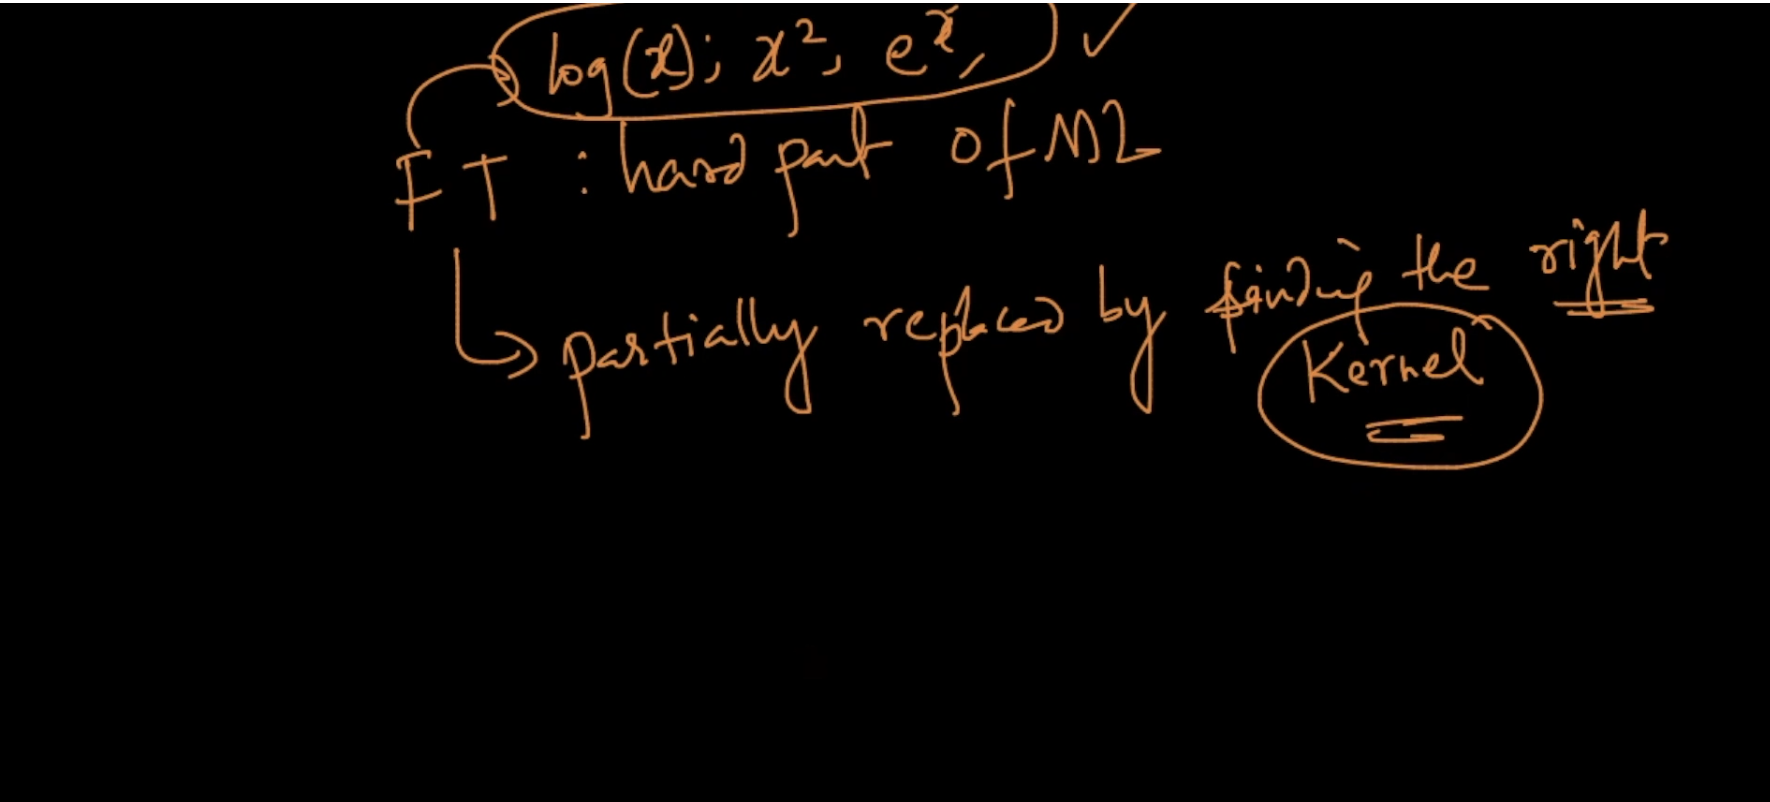 log(x); x², eˣ,
FT : hard part of ML
partially replaced by finding the right
Kernel